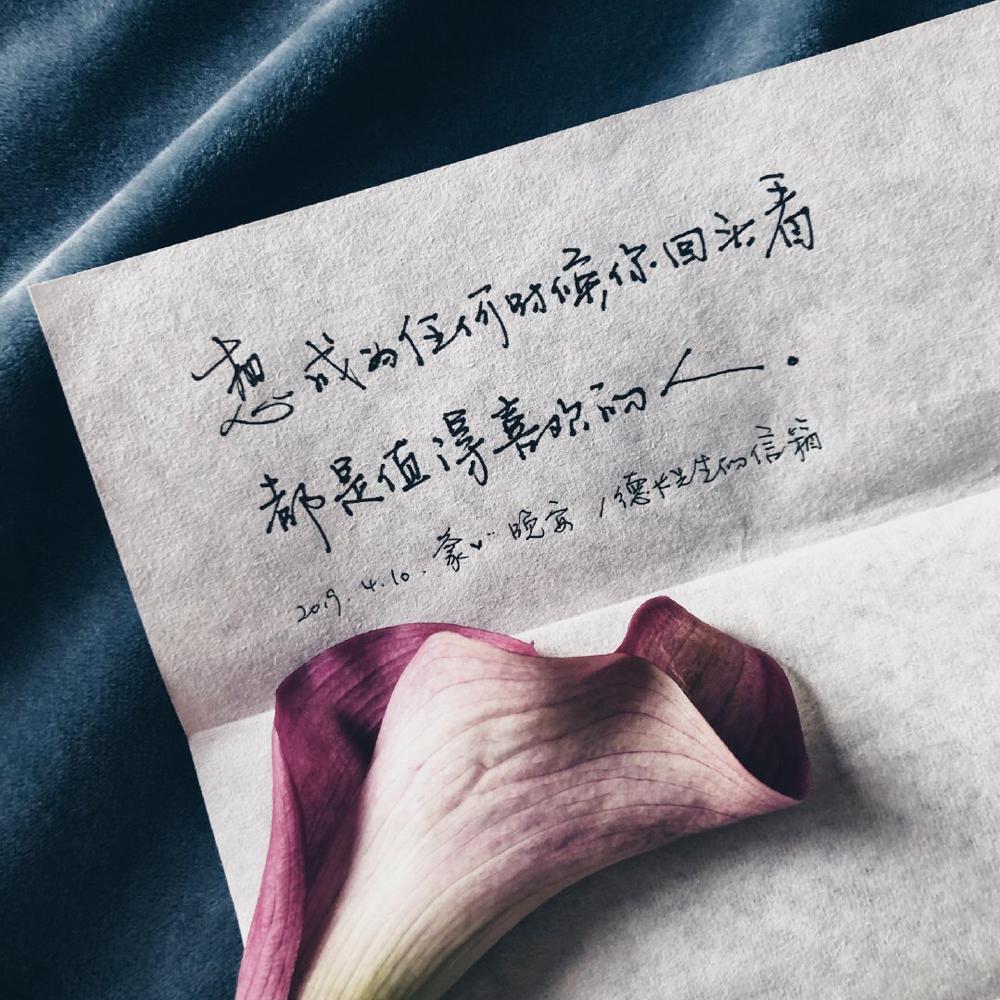 想成为任何时候,你回头看
都是值得喜欢的人.
2019.4.10. 晚安 /德卡先生的信箱